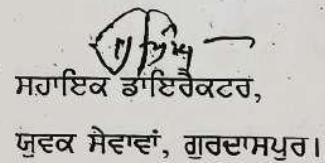 ਸਹਾਇਕ ਡਾਇਰੈਕਟਰ,
ਯੁਵਕ ਸੇਵਾਵਾਂ, ਗੁਰਦਾਸਪੁਰ।